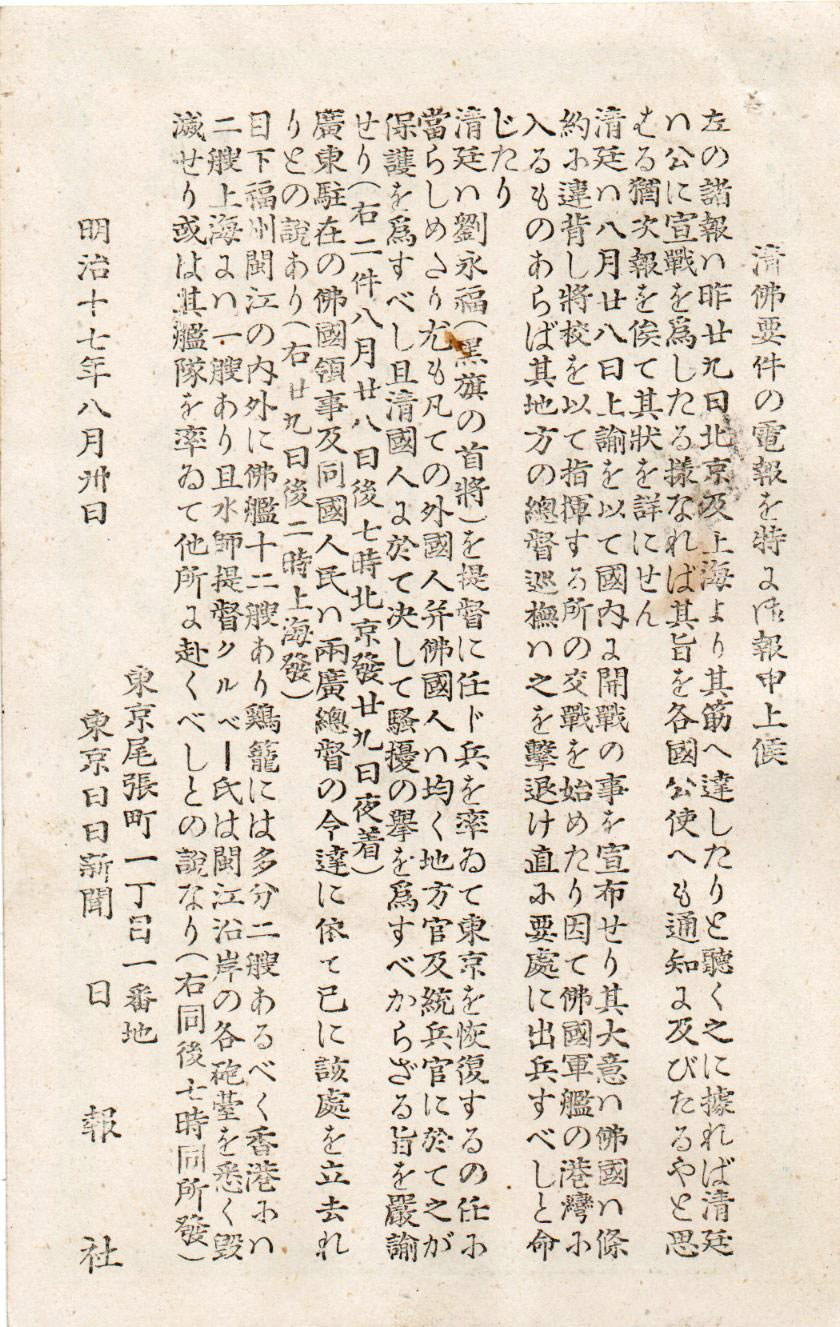 清佛要件の電報を特に御報申上候
左の諸報ハ昨廿九日北京及上海より其筋へ達したりと聽く之に據れば清廷
ハ公に宣戰を爲したる樣なれば其旨を各國公使へも通知に及びたるやと思
はる猶次報を俟て其狀を詳にせん
清廷ハ八月廿八日上諭を以て國内に開戰の事を宣布せり其大意ハ佛國ハ條
約に違背し將校を以て指揮する所の交戰を始めたり因て佛國軍艦の港灣に
入るものあらば其地方の總督巡撫ハ之を擊退け直に要處に出兵すべしと命
じたり
清廷ハ劉永福(黒旗の首將)を提督に任ド兵を率ゐて東京を恢復するの任に
當らしめたり尤も凡ての外國人并佛國人ハ均く地方官及統兵官に於て之が
保護を爲すべし且清國人に於て决して騷擾の擧を爲すべからざる旨を嚴諭
せり(右二件八月廿八日後七時北京發廿九日夜着)
廣東駐在の佛國領事及同國人民ハ兩廣總督の令達に依て已に該處を立去れ
りとの說あり(右廿九日後二時上海發)
目下福州閩江の内外に佛艦十二艘あり鷄籠には多分二艘あるべく香港にハ
二艘上海にハ一艘あり且水師提督クルベー氏は閩江沿岸の各砲臺を悉く毀
滅せり或は其艦隊を率ゐて他所に赴くべしとの說なり(右同後七時同所發)
明治十七年八月卅日
東京尾張町一丁目一番地
東京日日新聞 日報社